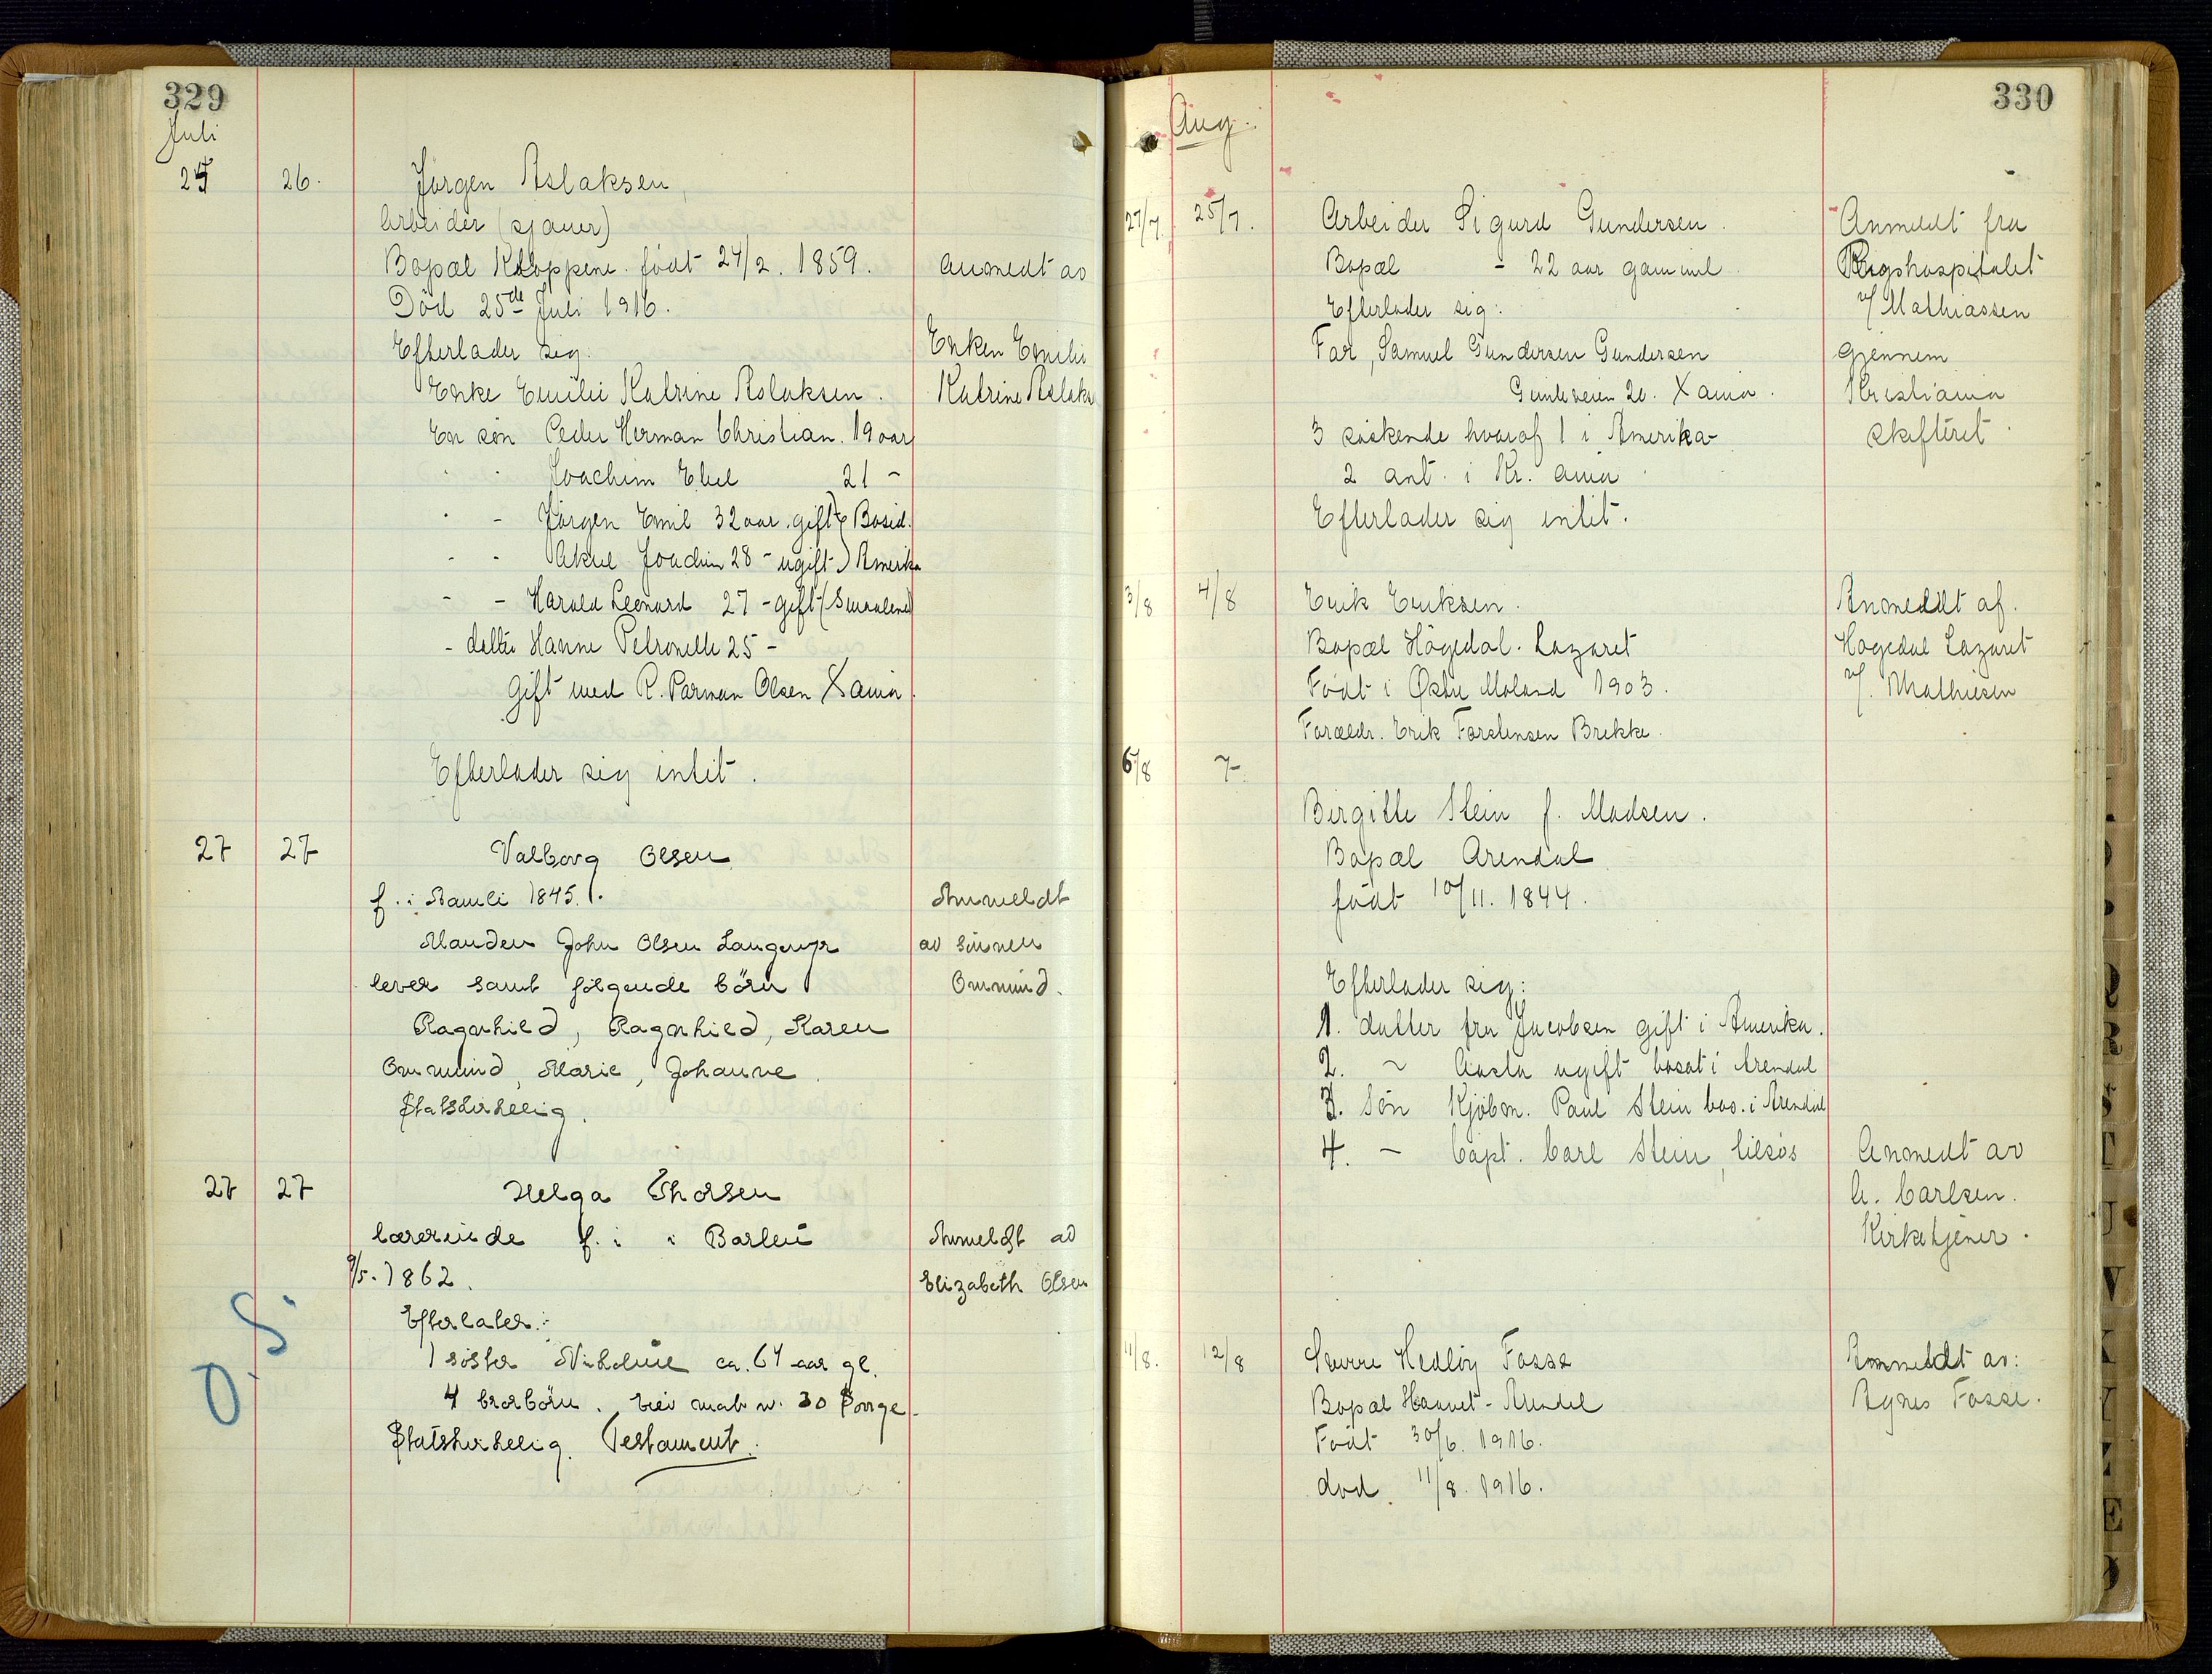 329
Juli
25 26. Jörgen Aslaksen,
Arbeider (sjauer)
Bopæl Kloppene. født 24/2. 1859. Anmeldt av
Död 25de Juli 1916.
Efterlader sig: Enken Emilie
Enke Emilie Katrine Aslaksen. Katrine Aslaks
En søn Peder Herman Christian. 19 aar
Joachim 21 -
" - Jörgen Emil 32 aar. gift) Bosid.
- - Aksel Joachim 28 - ugift) Amerika
- - Harald Leonard 27 - gift
- datter Hanne Petronelle 25 -
gift med R. Parman Olsen Xania.
Efterlader sig intet.
27 27 Valborg Olsen
f. i 1845. Anmeldt
Manden John Olsen Langemyr av sönnen
lever samt følgende börn Ommund.
Ragnhild, Ragnhild, Karen
Ommund, Marie, Johanne.
27 27 Helga Thorsen
lærerinde f. i i Barbu Anmeldt av
9/5. 1862. Elizabeth Olsen
Efterlater:
1 søster ca. 64 aar gl.
4 brorbörn.
Testament.
O. S.
330
Aug.
27/7. 25/7. Arbeider Sigurd Gundersen. Anmeldt fra
Bopæl - 22 aar gammel Rigshospitalet
Efterlader sig: v/ Mathiassen
Far, Samuel Gundersen Gundersen gjennem
20. Xania. Kristiania
3 söskende hvoraf 1 i Amerika - skifteret.
2 ant. i Kr. ania
Efterlader sig intet.
3/8 4/8 Erik Eriksen. Anmeldt af.
Bopæl Högedal. Lazaret Högedal Lazaret
Født i Østre Moland 1903. v/. Mathiesen
Foræeldr. Erik Torstensen Brekke.
6/8 7- Birgitte Stein f. Madsen.
Bopæl Arendal
født 10/11. 1844.
Efterlader sig:
1. datter fru Jacobsen gift i Amerika.
2. ~ Aasta ugift bosat i Arendal
3. Sön Kjöbm. Paul Stein bos. i Arendal
4. - Capt. Carl Stein, Anmeldt av
A. Carlsen.
Kirketjener.
11/8. 12/8 Sverre Hedley Fosse Anmeldt av:
Bopæl - Arendal Agnes Fosse.
Født 30/6. 1916.
död 11/8. 1916.